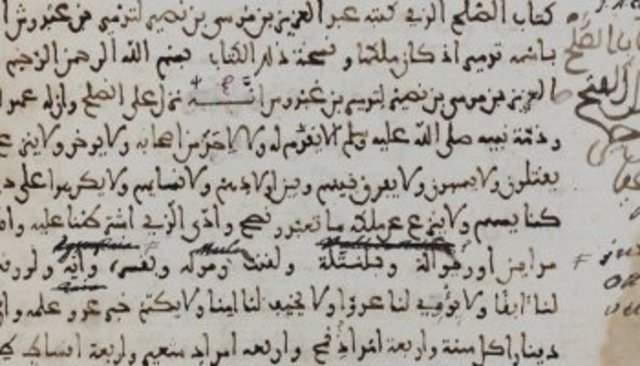 كتاب الصلح الذي كتبه عبد العزيز بن موسى بن نصير لتدمير بن غبدوش
باسمه تدمير اذ كان ملكها ونسخة ذلك الكتاب بسم الله الرحمن الرحيم
العزيز بن موسى بن نصير لتدمير بن غبدوش انه نزل على الصلح وان له عهد
وذمة نبيه صلى الله عليه وسلم الا يقدم له ولا لاحد من اصحابه ولا يؤخر ولا ينزع
يقتلون ولا يسبون ولا يفرق بينهم وبين اولادهم ولا نسايهم ولا يكرهوا على
كنايسهم ولا ينزع عن ملكه ما تعبد ونصح وادى الذي اشترطنا عليه
مداين اوريوالة وبلنتلة ولقنت وموله وبقسره وايه
لنا ابقا ولا يؤوي لنا عدوا ولا يخيف لنا امنا ولا يكتم خبر عدو علمه
دينارا كل سنة واربعة امداد قمح واربعة امداد شعير واربعة اقساط
الصلح
الفتح